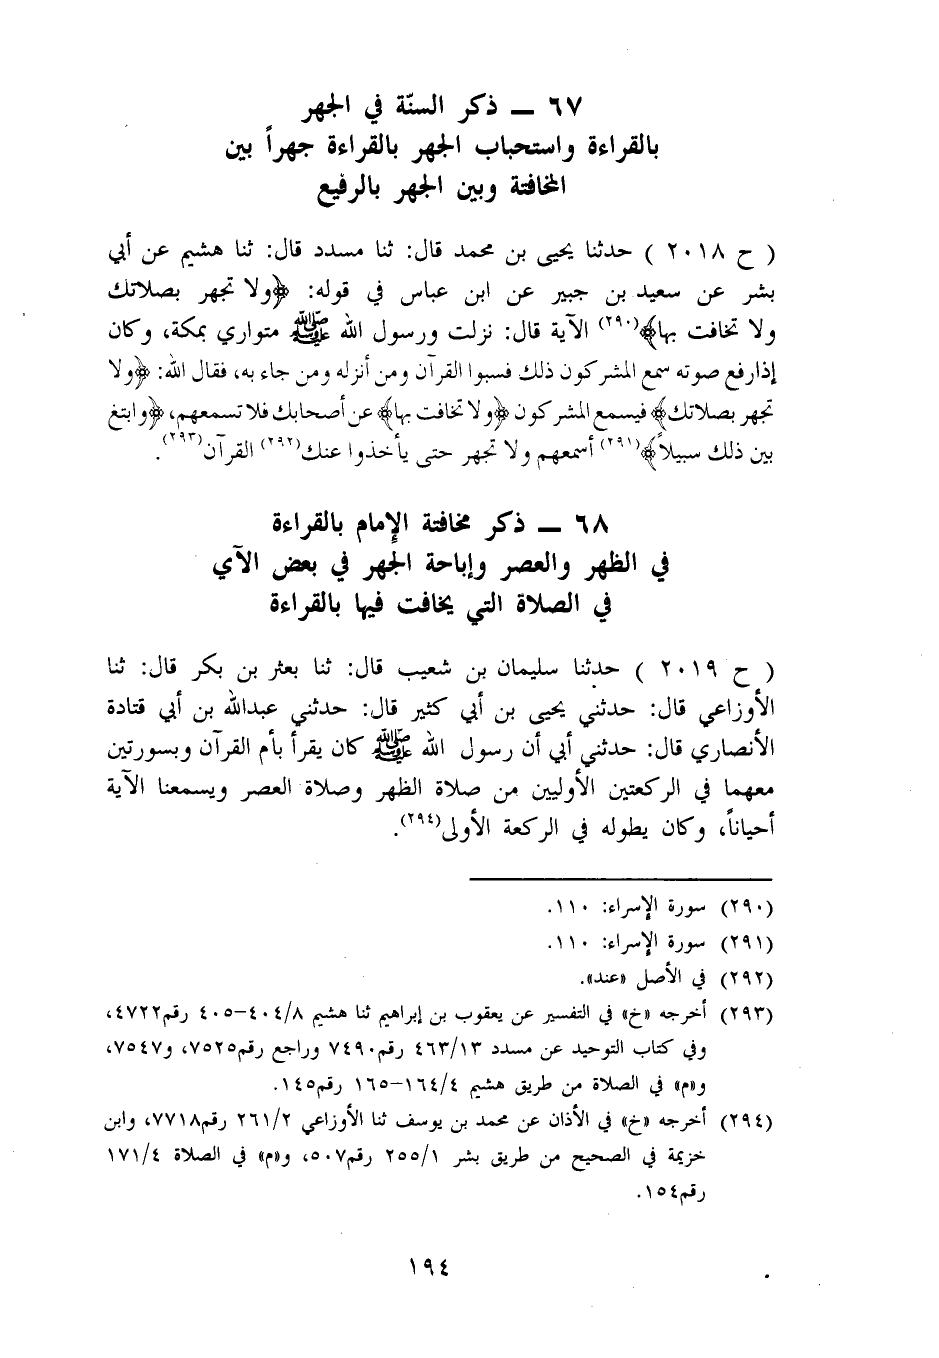 ٦٧ ــ ذكر السنّة في الجهر
بالقراءة واستحباب الجهر بالقراءة جهراً بين
المخافتة وبين الجهر بالرفيع
( ح ٢٠١٨ ) حدثنا يحيى بن محمد قال: ثنا مسدد قال: ثنا هشيم عن أبي
بشر عن سعيد بن جبير عن ابن عباس في قوله: ﴿ولا تجهر بصلاتك
ولا تخافت بها﴾(٢٩٠) الآية قال: نزلت ورسول الله ﷺ متواري بمكة، وكان
إذارفع صوته سمع المشركون ذلك فسبوا القرآن ومن أنزله ومن جاء به، فقال الله: ﴿ولا
تجهر بصلاتك﴾ فيسمع المشركون ﴿ولا تخافت بها﴾ عن أصحابك فلا تسمعهم، ﴿وابتغ
بين ذلك سبيلاً﴾(٢٩١) أسمعهم ولا تجهر حتى يأخذوا عنك(٢٩٢) القرآن(٢٩٣).
٦٨ ــ ذكر مخافتة الإمام بالقراءة
في الظهر والعصر وإباحة الجهر في بعض الآي
في الصلاة التي يخافت فيها بالقراءة
( ح ٢٠١٩ ) حدثنا سليمان بن شعيب قال: ثنا بعثر بن بكر قال: ثنا
الأوزاعي قال: حدثني يحيى بن أبي كثير قال: حدثني عبدالله بن أبي قتادة
الأنصاري قال: حدثني أبي أن رسول الله ﷺ كان يقرأ بأم القرآن وبسورتين
معهما في الركعتين الأوليين من صلاة الظهر وصلاة العصر ويسمعنا الآية
أحياناً، وكان يطوله في الركعة الأولى(٢٩٤).
(٢٩٠) سورة الإسراء: ١١٠.
(٢٩١) سورة الإسراء: ١١٠.
(٢٩٢) في الأصل «عند».
(٢٩٣) أخرجه «خ» في التفسير عن يعقوب بن إبراهيم ثنا هشيم ٤٠٤/٨–٤٠٥ رقم٤٧٢٢،
وفي كتاب التوحيد عن مسدد ٤٦٣/١٣ رقم٧٤٩٠ وراجع رقم٧٥٢٥، و٧٥٤٧،
و«م» في الصلاة من طريق هشيم ١٦٤/٤–١٦٥ رقم١٤٥.
(٢٩٤) أخرجه «خ» في الأذان عن محمد بن يوسف ثنا الأوزاعي ٢٦١/٢ رقم٧٧١٨، وابن
خزيمة في الصحيح من طريق بشر ٢٥٥/١ رقم٥٠٧، و«م» في الصلاة ١٧١/٤
رقم١٥٤.
١٩٤